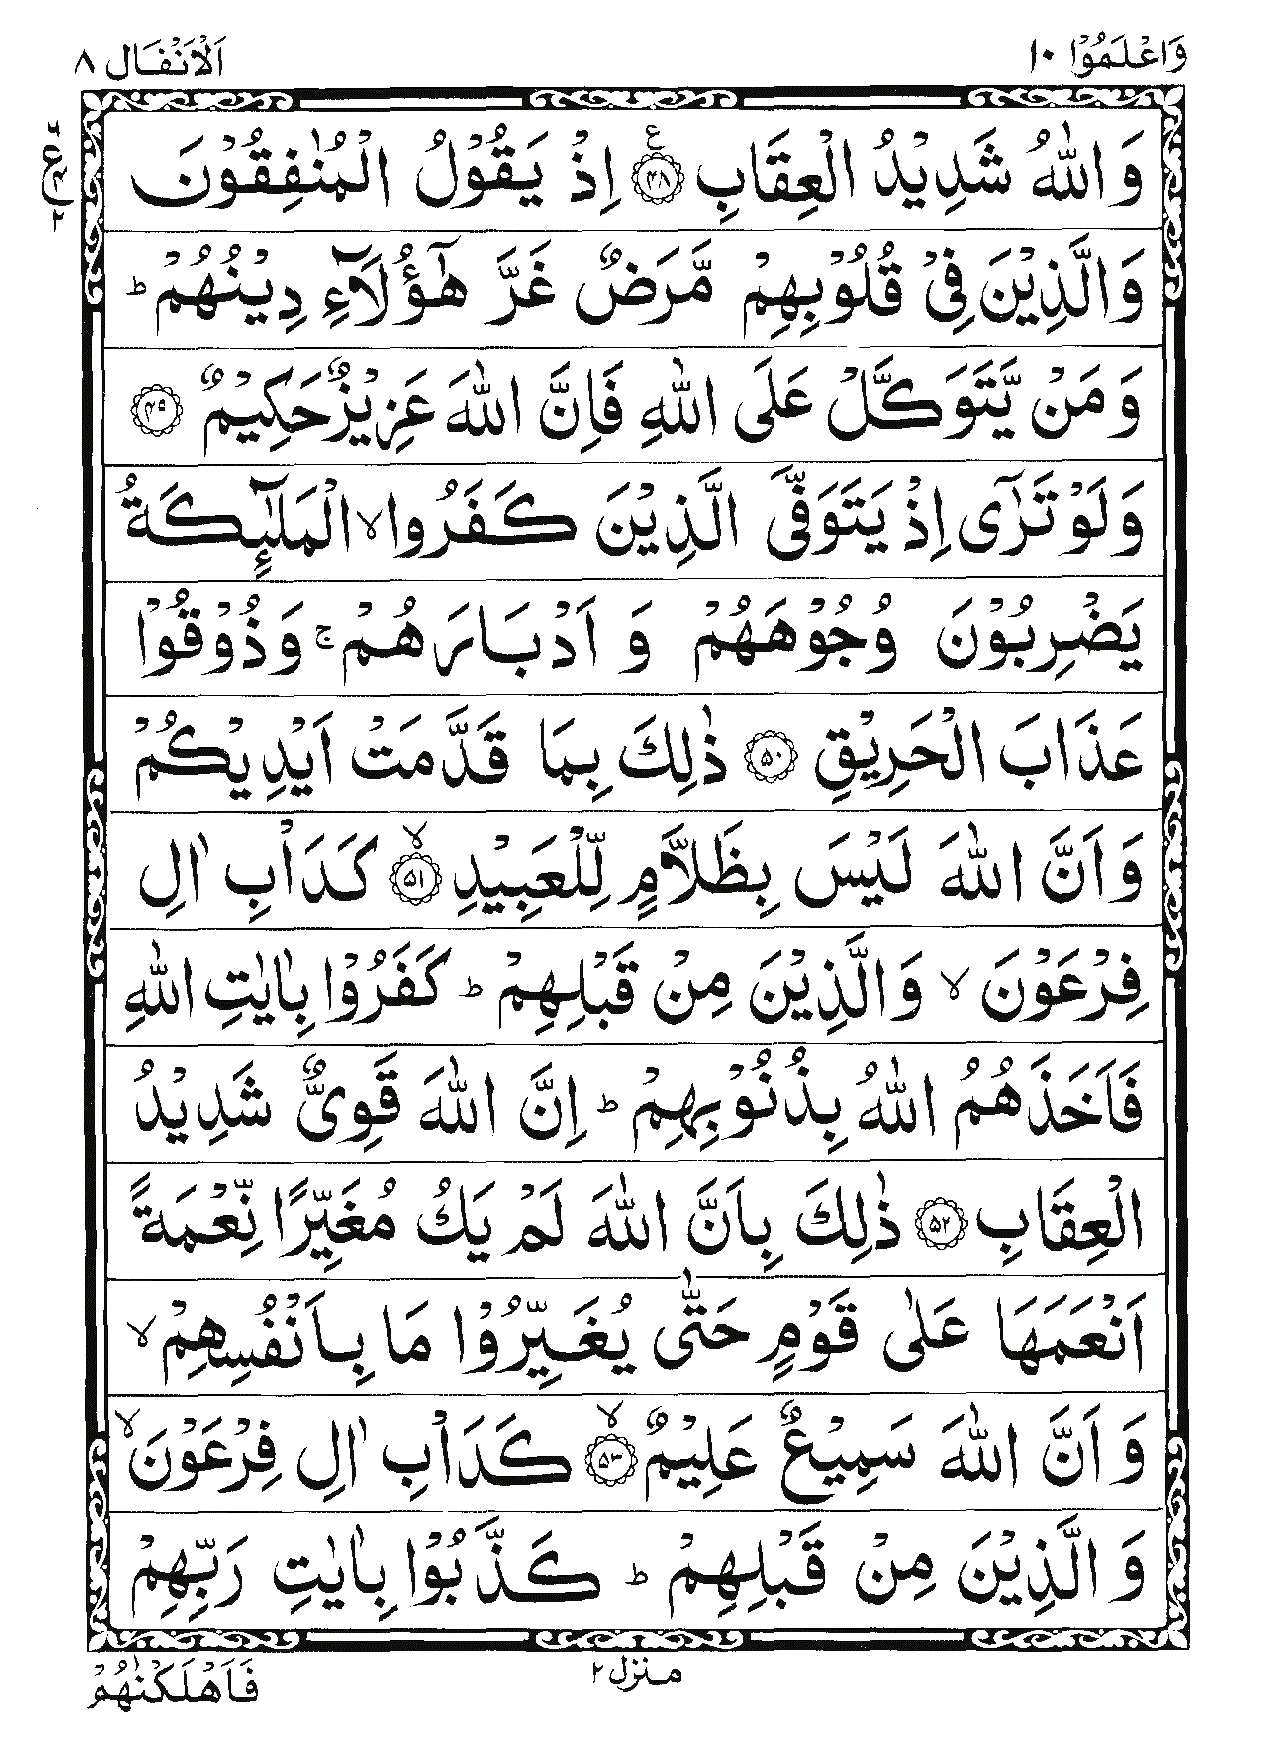 وَاعْلَمُوْا ۱۰
اَلْاَنْفَال ۸
وَاللّٰهُ شَدِيْدُ الْعِقَابِ ﴿۴۸﴾ ع اِذْ يَقُوْلُ الْمُنٰفِقُوْنَ
ع ۲
وَالَّذِيْنَ فِىْ قُلُوْبِهِمْ مَّرَضٌ غَرَّ هٰٓؤُلَآءِ دِيْنُهُمْ ؕ
وَمَنْ يَّتَوَكَّلْ عَلَى اللّٰهِ فَاِنَّ اللّٰهَ عَزِيْزٌ حَكِيْمٌ ﴿۴۹﴾
وَلَوْ تَرٰٓى اِذْ يَتَوَفَّى الَّذِيْنَ كَفَرُوا ۙ الْمَلٰٓئِكَةُ
يَضْرِبُوْنَ وُجُوْهَهُمْ وَ اَدْبَارَهُمْ ۚ وَذُوْقُوْا
عَذَابَ الْحَرِيْقِ ﴿۵۰﴾ ذٰلِكَ بِمَا قَدَّمَتْ اَيْدِيْكُمْ
وَاَنَّ اللّٰهَ لَيْسَ بِظَلَّامٍ لِّلْعَبِيْدِ ﴿۵۱﴾ ۙ كَدَاْبِ اٰلِ
فِرْعَوْنَ ۙ وَالَّذِيْنَ مِنْ قَبْلِهِمْ ؕ كَفَرُوْا بِاٰيٰتِ اللّٰهِ
فَاَخَذَهُمُ اللّٰهُ بِذُنُوْبِهِمْ ؕ اِنَّ اللّٰهَ قَوِىٌّ شَدِيْدُ
الْعِقَابِ ﴿۵۲﴾ ذٰلِكَ بِاَنَّ اللّٰهَ لَمْ يَكُ مُغَيِّرًا نِّعْمَةً
اَنْعَمَهَا عَلٰى قَوْمٍ حَتّٰى يُغَيِّرُوْا مَا بِاَنْفُسِهِمْ ۙ
وَاَنَّ اللّٰهَ سَمِيْعٌ عَلِيْمٌ ﴿۵۳﴾ ۙ كَدَاْبِ اٰلِ فِرْعَوْنَ ۙ
وَالَّذِيْنَ مِنْ قَبْلِهِمْ ؕ كَذَّبُوْا بِاٰيٰتِ رَبِّهِمْ
منزل ۲
فَاَهْلَكْنٰهُمْ